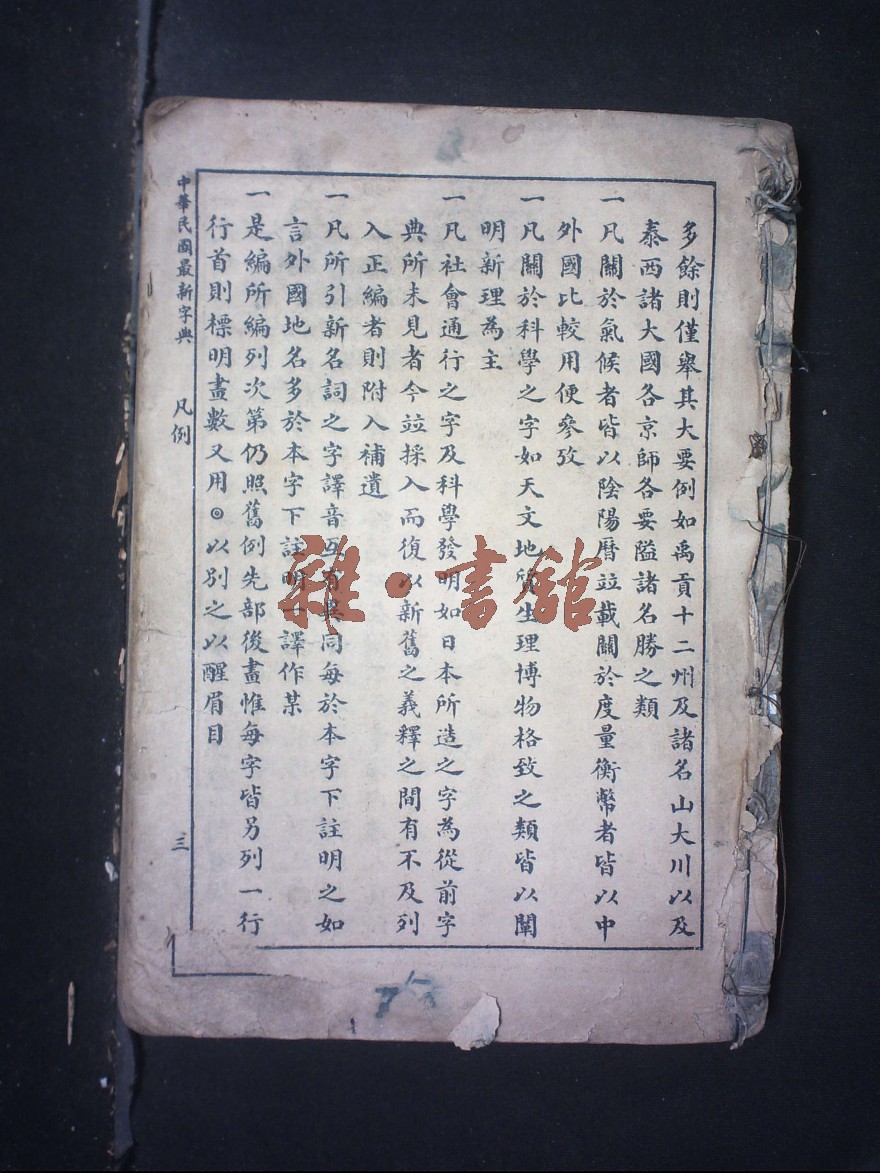 多餘則僅舉其大要例如禹貢十二州及諸名山大川以及
泰西諸大國各京師各要隘諸名勝之類
一凡關於氣候者皆以陰陽曆竝載關於度量衡幣者皆以中
外國比較用便參攷
一凡關於科學之字如天文地質生理博物格致之類皆以闡
明新理為主
一凡社會通行之字及科學發明如日本所造之字為從前字
典所未見者今竝採入而復以新舊之義釋之間有不及列
入正編者則附入補遺
一凡所引新名詞之字譯音互有異同每於本字下註明之如
言外國地名多於本字下註明一譯作某
一是編所編列次第仍照舊例先部後畫惟每字皆另列一行
行首則標明畫數又用◎以別之以醒眉目
中華民國最新字典
凡例
三
雜·書館